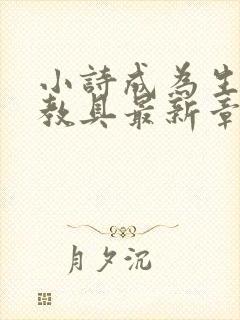 小詩成為生
教具最新章
月夕沉